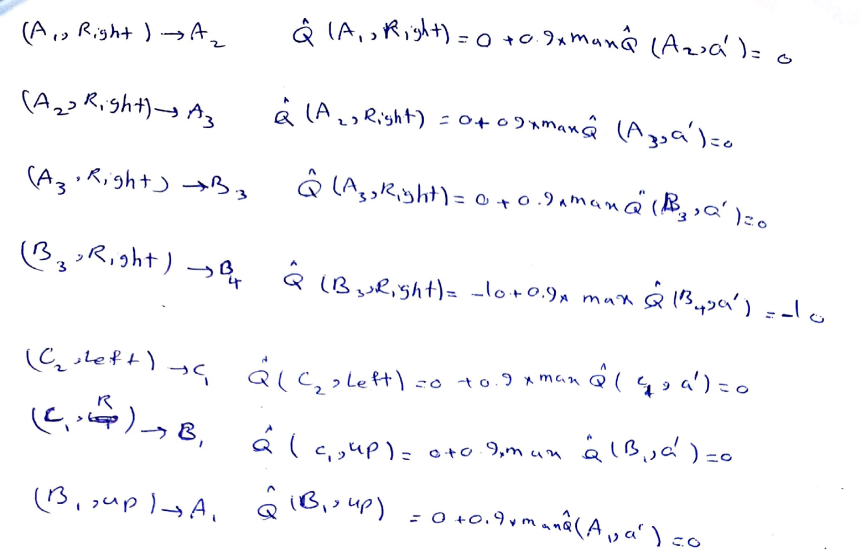 (A₁, Right) → A₂ Q̂ (A₁, Right) = 0 + 0.9 x man Q̂ (A₂, a') = 0
(A₂, Right) → A₃ Q̂ (A₂, Right) = 0 + 09 x max Q̂ (A₃, a') = 0
(A₃, Right) → B₃ Q̂ (A₃, Right) = 0 + 0.9 x man Q̂ (B₃, a') = 0
(B₃, Right) → B₄ Q̂ (B₃, Right) = -10 + 0.9 x max Q̂ (B₄, a') = -10
(C₂, Left) → C₁ Q̂ (C₂, Left) = 0 + 0.9 x man Q̂ (C₁, a') = 0
(C₁, R) → B₁ Q̂ (C₁, up) = 0 + 0.9, man Q̂ (B₁, a') = 0
(B₁, up) → A₁ Q̂ (B₁, up) = 0 + 0.9 x man Q̂ (A₁, a') = 0